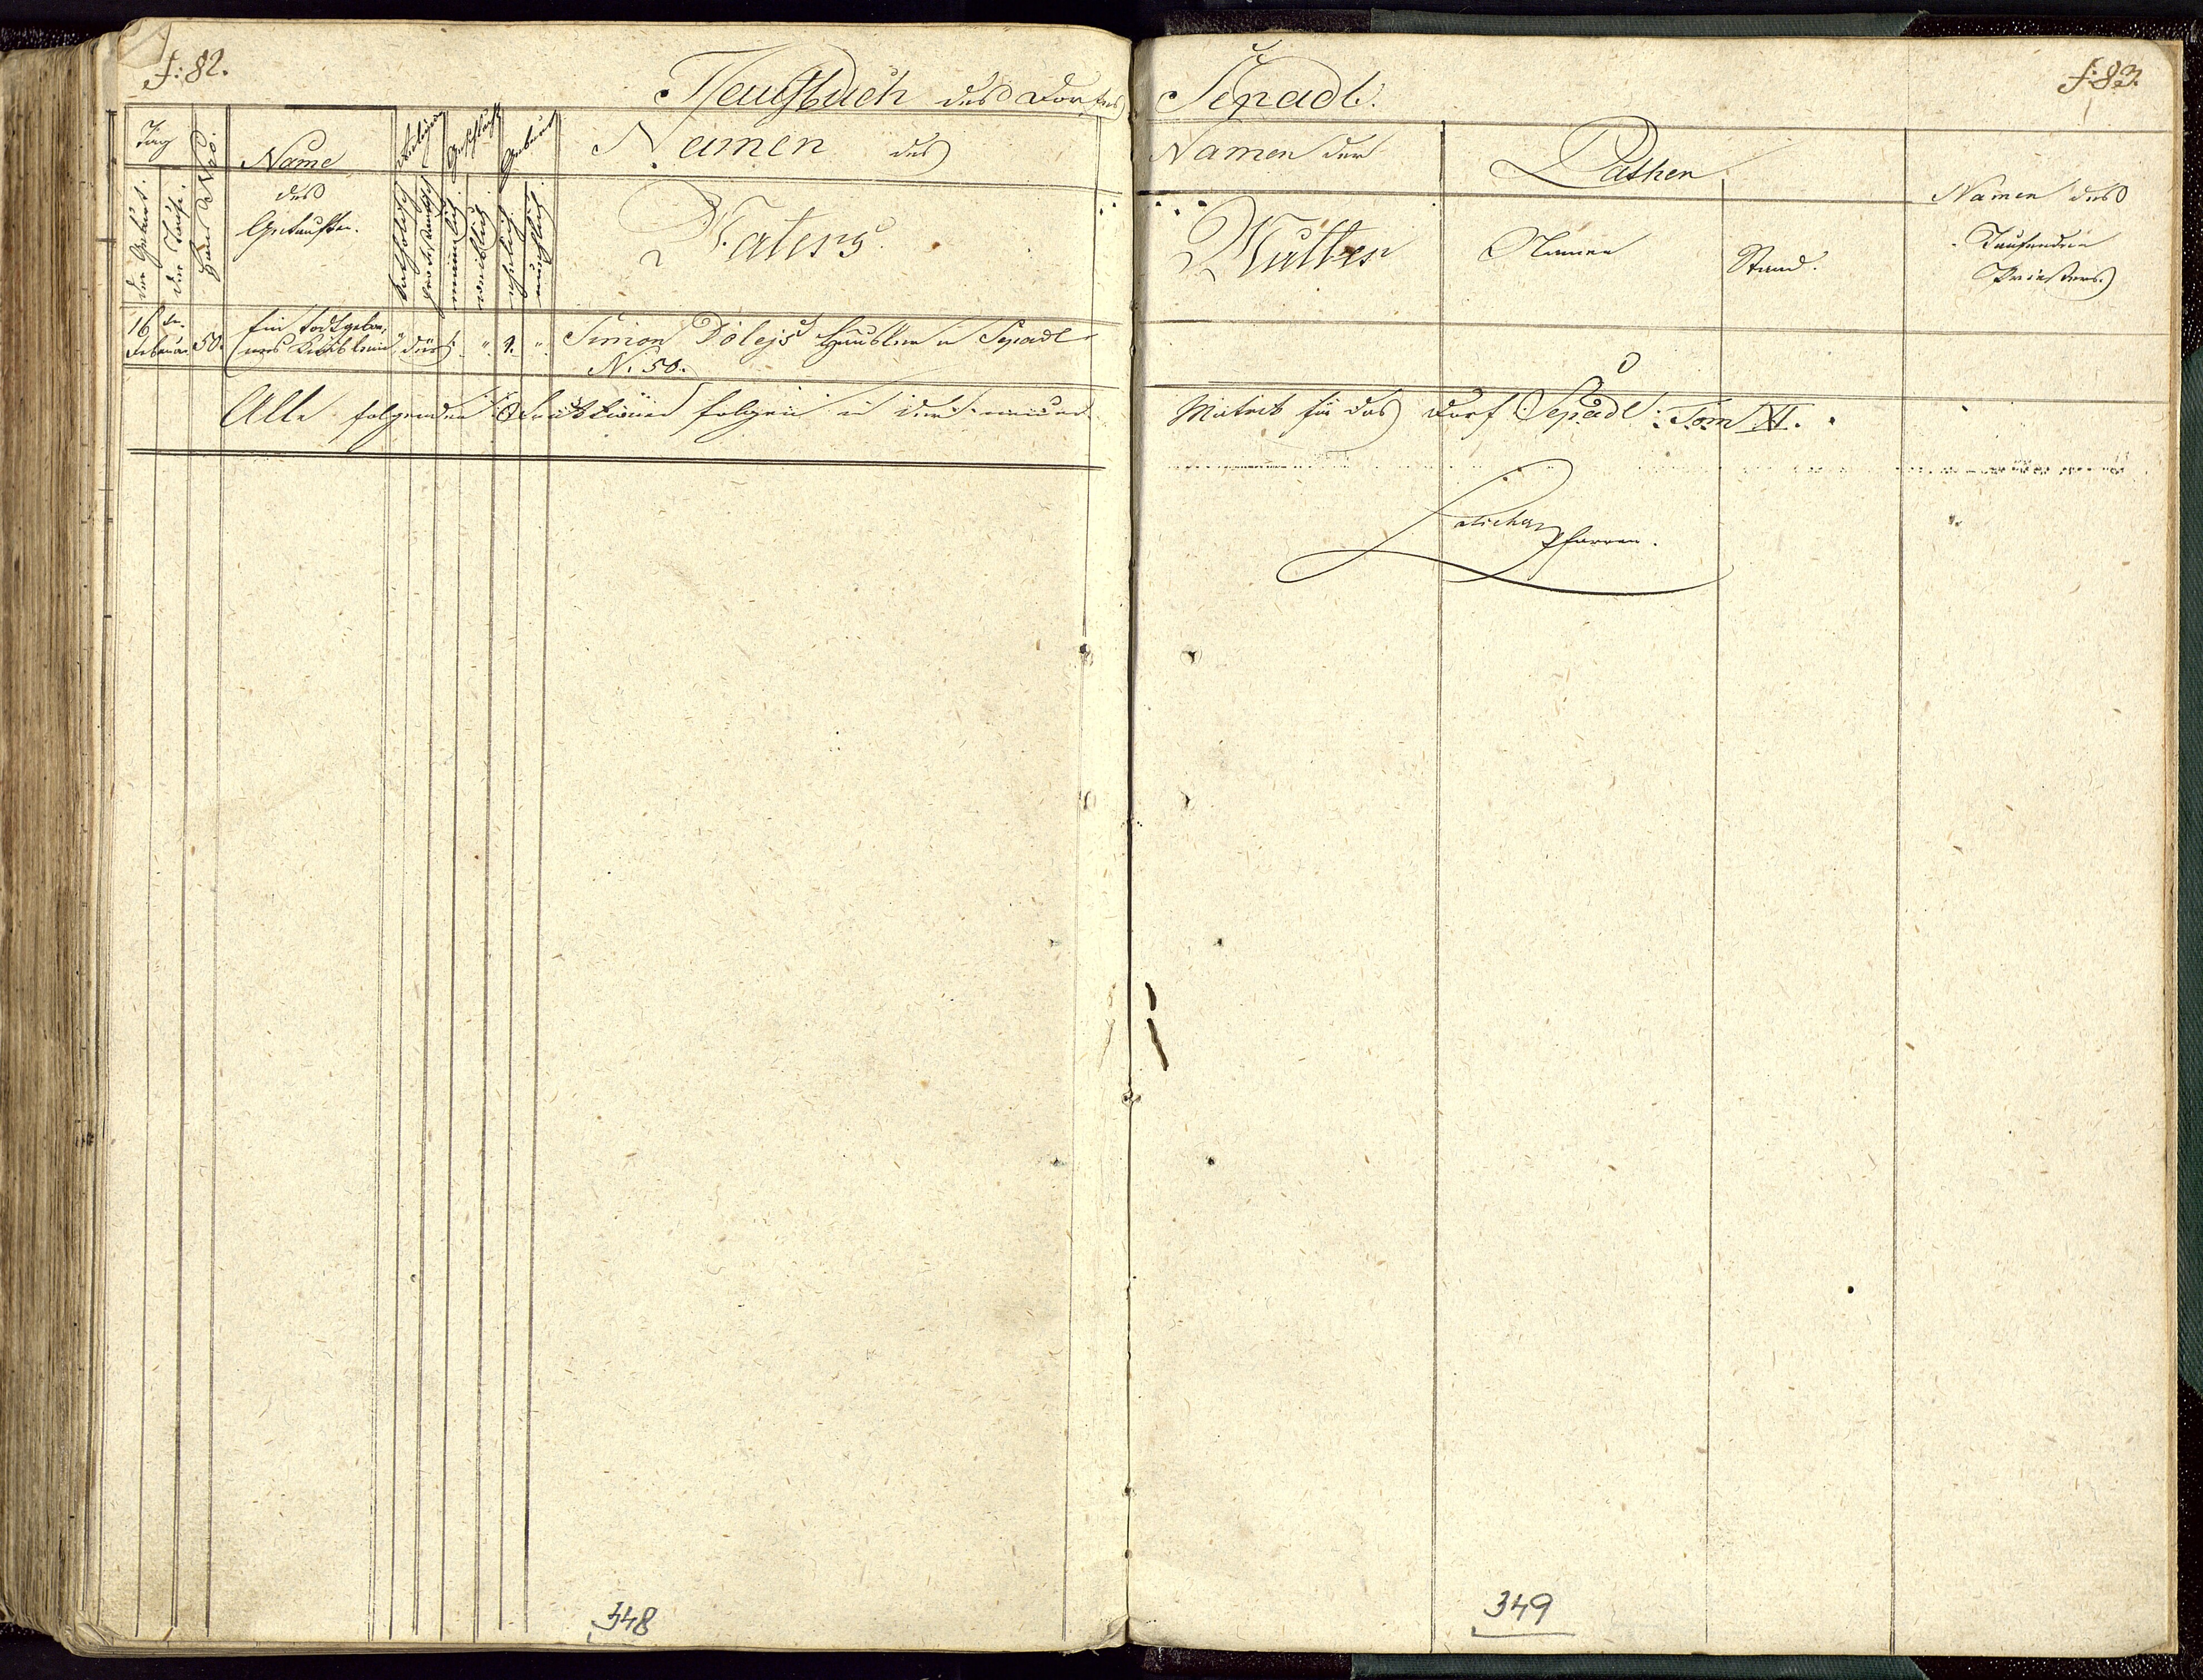 f: 82.
Taufbuch des Dorfes
Tag
der Geburt.
der Taufe.
Haus Nro.
Name
des
Getauften.
Religion
katholisch
Geschlecht
männlich
weiblich
Geburt
ehelich
unehelich
Namen des
Vaters
16 te.
Februar
50.
Ein todtgebor,
nes Knäblein
"
1.
"
Simon Dolejs Häusler in Sepadl
N. 50.
Alle folgenden folgen in der neuen
348
Sepadl.
f: 83.
Namen der
Mutter
Pathen
Namen
Stand.
Namen des
Taufenden
Priesters
Matrik für das Dorf Sepadl: Tom XI.
Pfarrer.
349